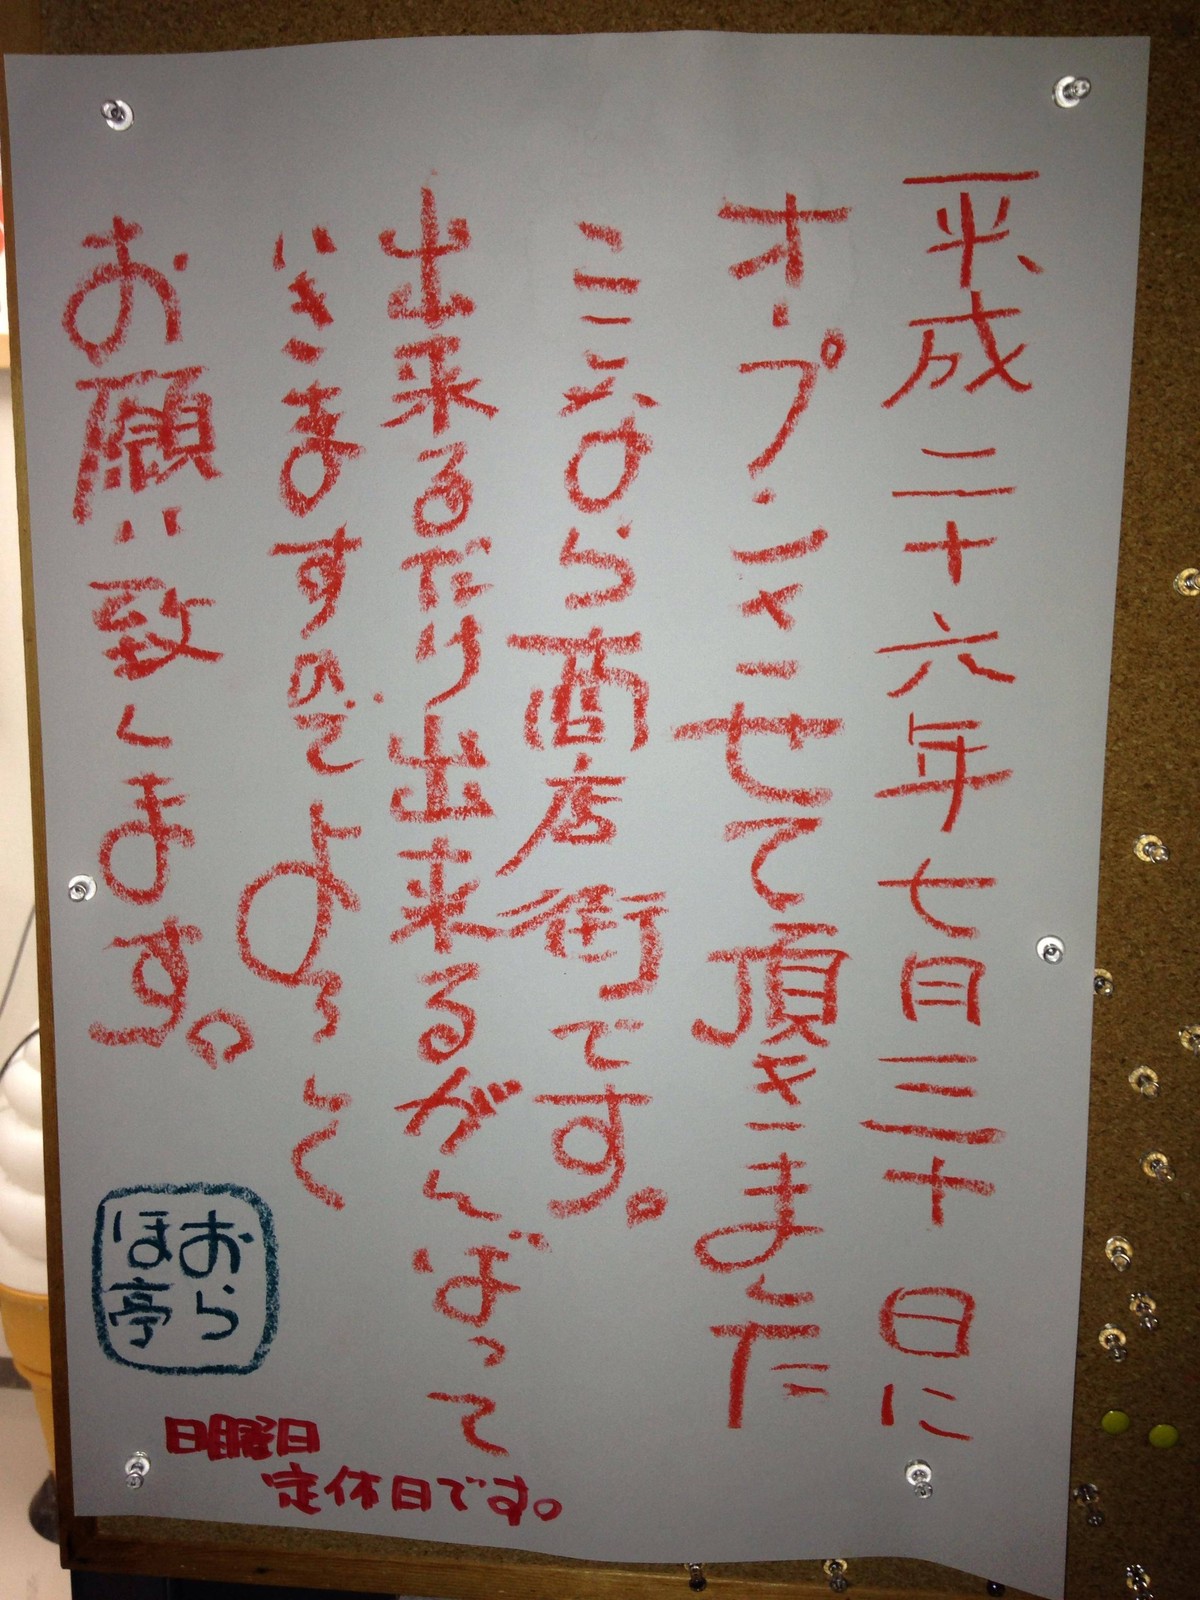 平成二十六年七月三十日に
オープンさせて頂きました
ここなら商店街です。
出来るだけ出来るがんばって
いきますのでよろしく
お願い致します。
おら
ほ亭
日曜日
定休日です。